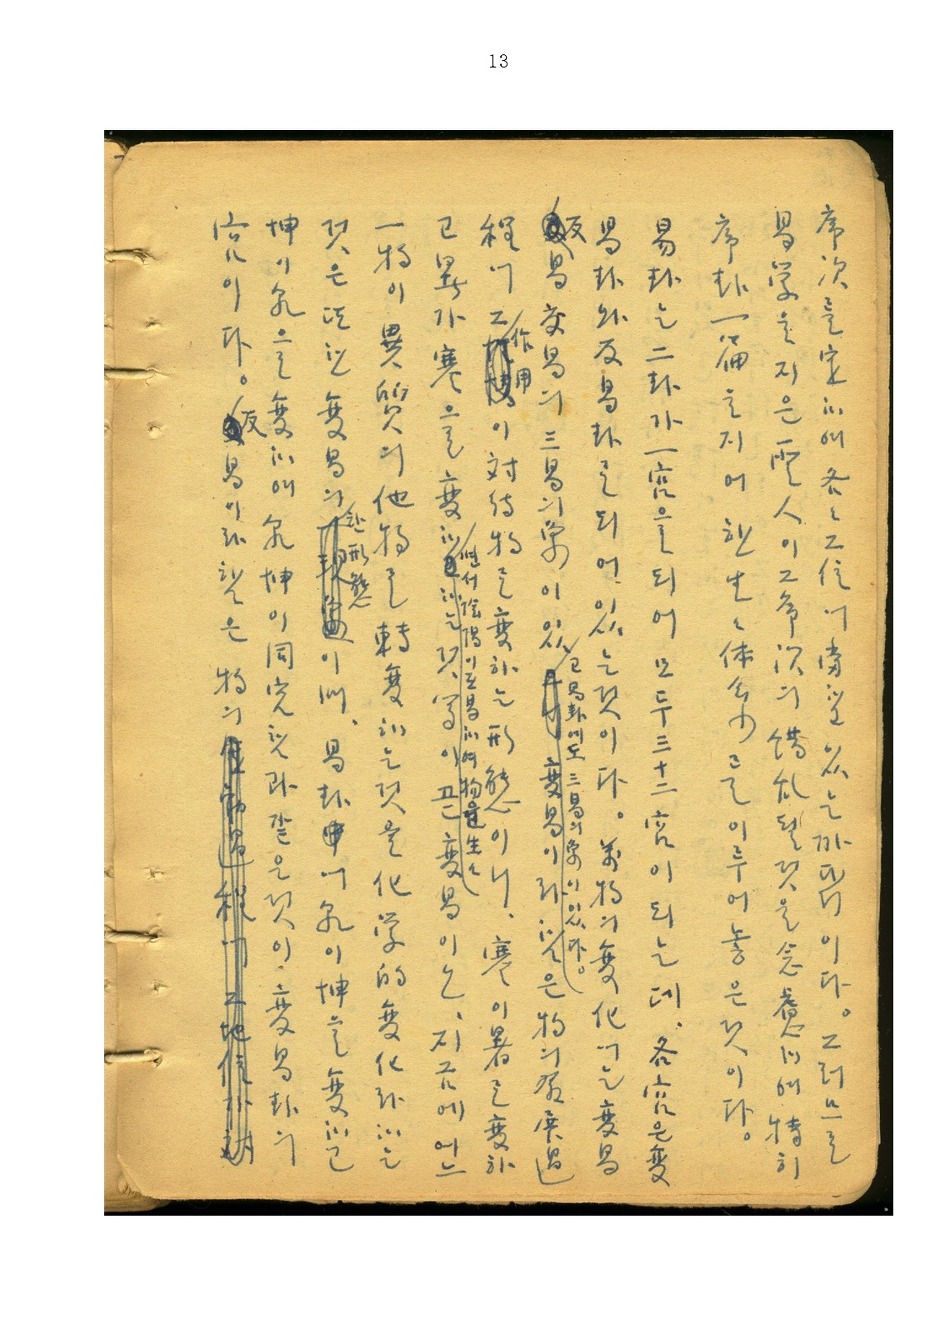 13
序次를 定하여 各各 그 位에 當하고 있는 까닭이다。그러므로
易学을 지은 聖人이 그 序次의 錯乱될것을 念慮하여 特히
序卦一篇을 지어 써 生生体系를 이루어 놓은것이다。
易卦는 二卦가 一宮을 되어 모두 三十二宮이 되는데、各宮은 変
易卦와 反易卦로 되어 있는것이다。萬物의 変化에는 変易
反易 交易의 三易의 象이 있고 易卦에도 三易의 象이 있다。変易이라 함은 物의 發展過
程에 그 作用이 対待物로 変하는 形態이니、寒이 暑로 変하
고 暑가 寒으로 変하면서 陰陽이 交易하여 物을 生하는 것 等이 곧 変易이오、지금에 어느
一物이 異質의 他物로 轉変하는것을 化学的変化라 하는
것은 또한 変易의 한 形態이며、易卦中에 乾이 坤으로 変하고
坤이 乾으로 変하여 乾坤이 同宮함과 같은것이 変易卦의
宮이다。反易이라 함은 物의